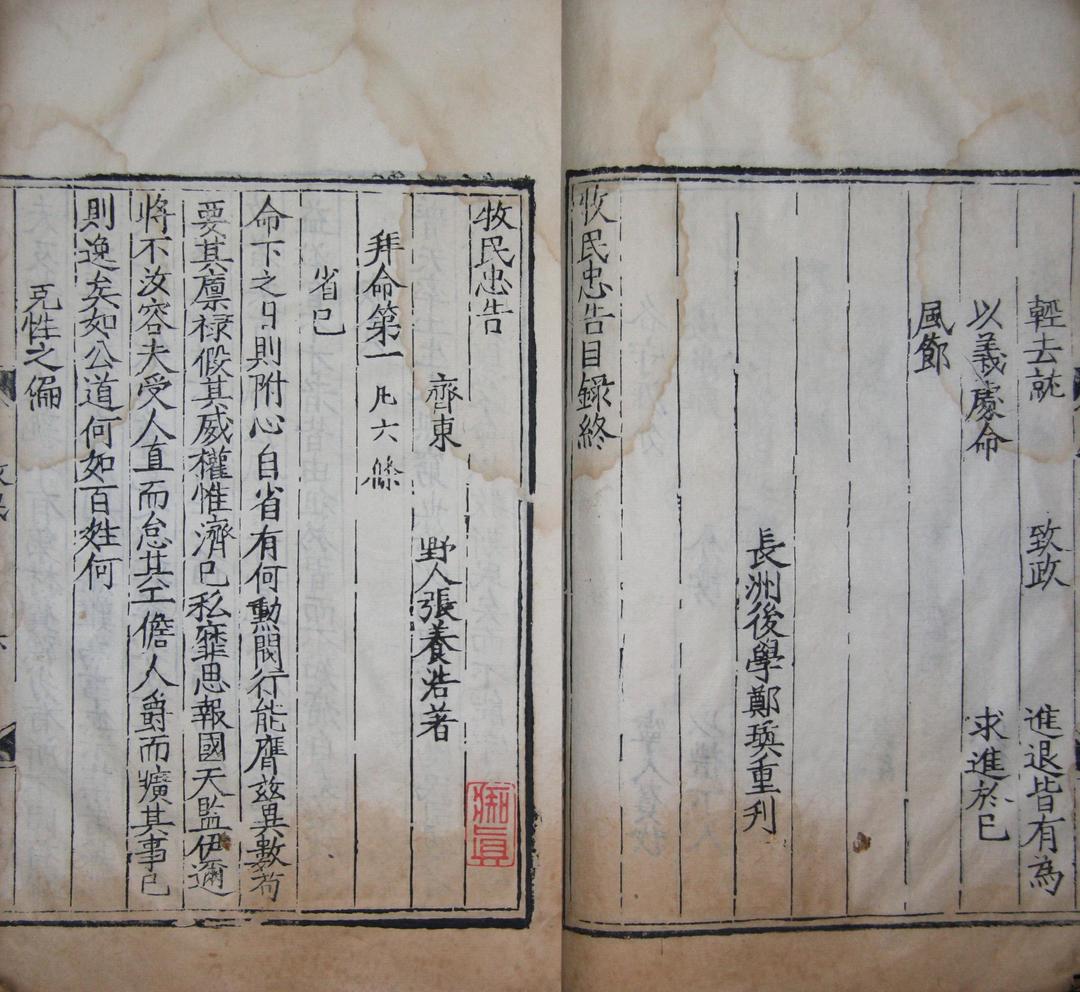 輕去就 致政 進退皆有為
以義處命 求進於己
風節
長洲後學鄭瓛重刋
牧民忠告目錄終
牧民忠告
齊東 野人張養浩著
拜命第一 凡六條
省己
命下之日則附心自省有何勳閥行能膺兹異數苟
要其廪禄假其威權惟濟己私靡思報國天監伊邇
將不汝容夫受人直而怠其工儋人爵而曠其事己
則逸矣如公道何如百姓何
克性之偏